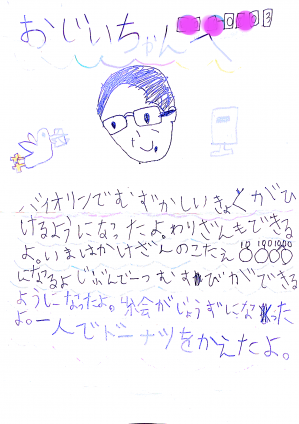 おじいちゃんへ
003
バイオリンでむずかしいきょくがひ
けるようになったよ。わりざんもできる
よ。いまはかけざんのこたえ
10 100 1000
になるよじぶんで一つむすびができる
ようになったよ。絵がじょうずになった
よ。一人でドーナツをかえたよ。